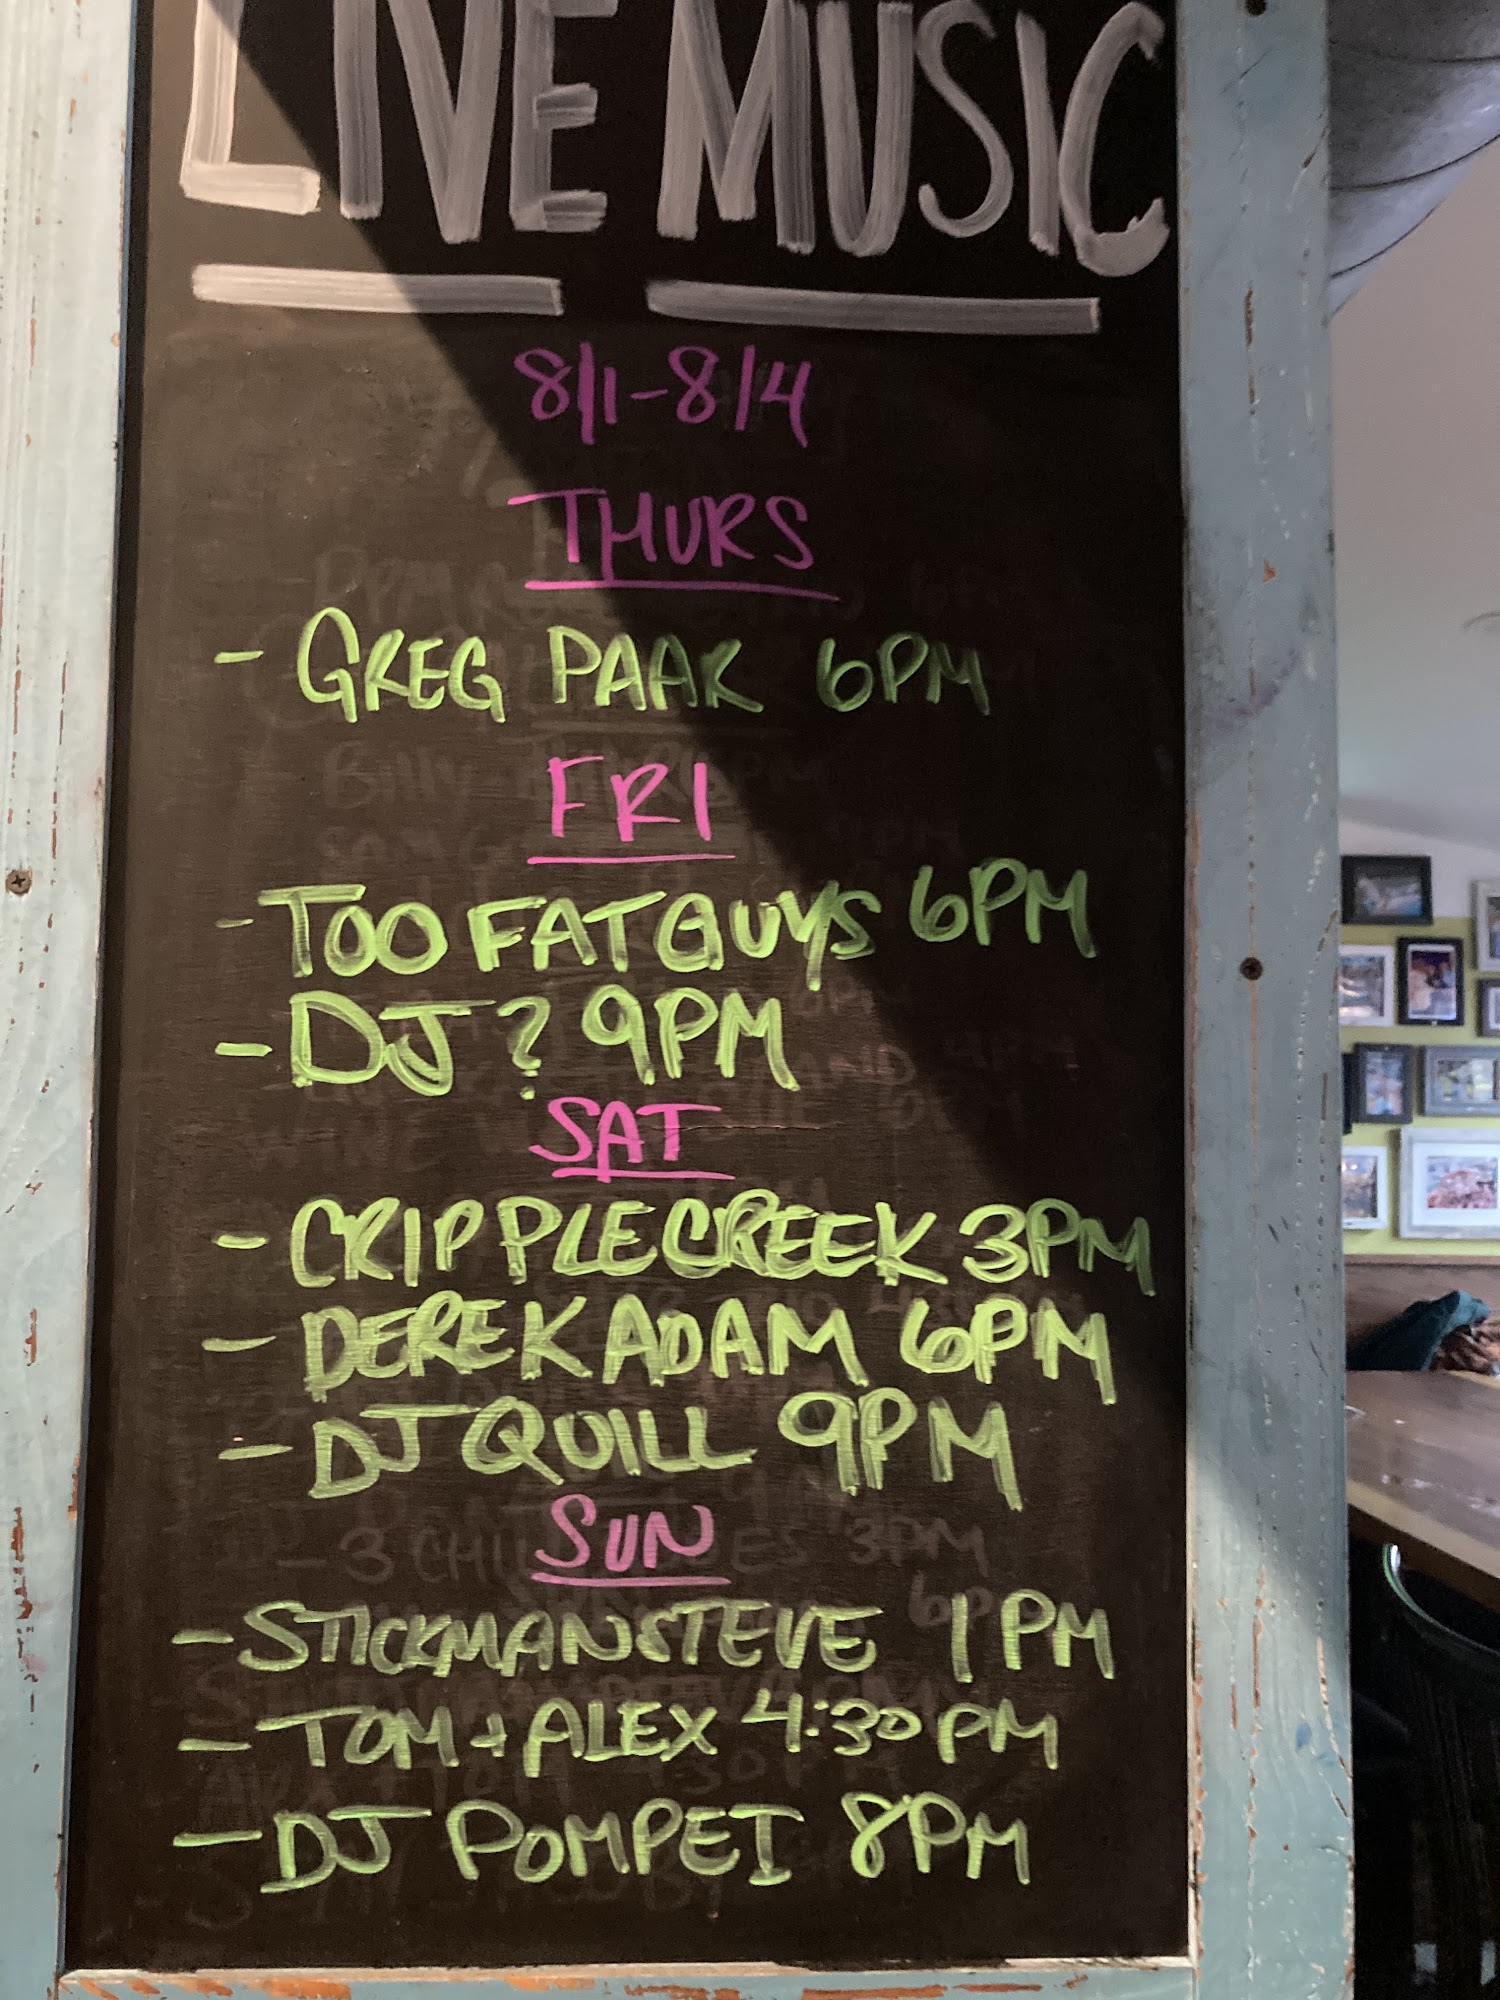 LIVE MUSIC
8/1-8/4
THURS
- GREG PAAR 6PM
FRI
- TOO FAT GUYS 6PM
- DJ ? 9PM
SAT
- CRIPPLE CREEK 3PM
- DEREK ADAM 6PM
- DJ QUILL 9PM
SUN
- STICKMANSTEVE 1PM
- TOM + ALEX 4:30PM
- DJ POMPEI 8PM